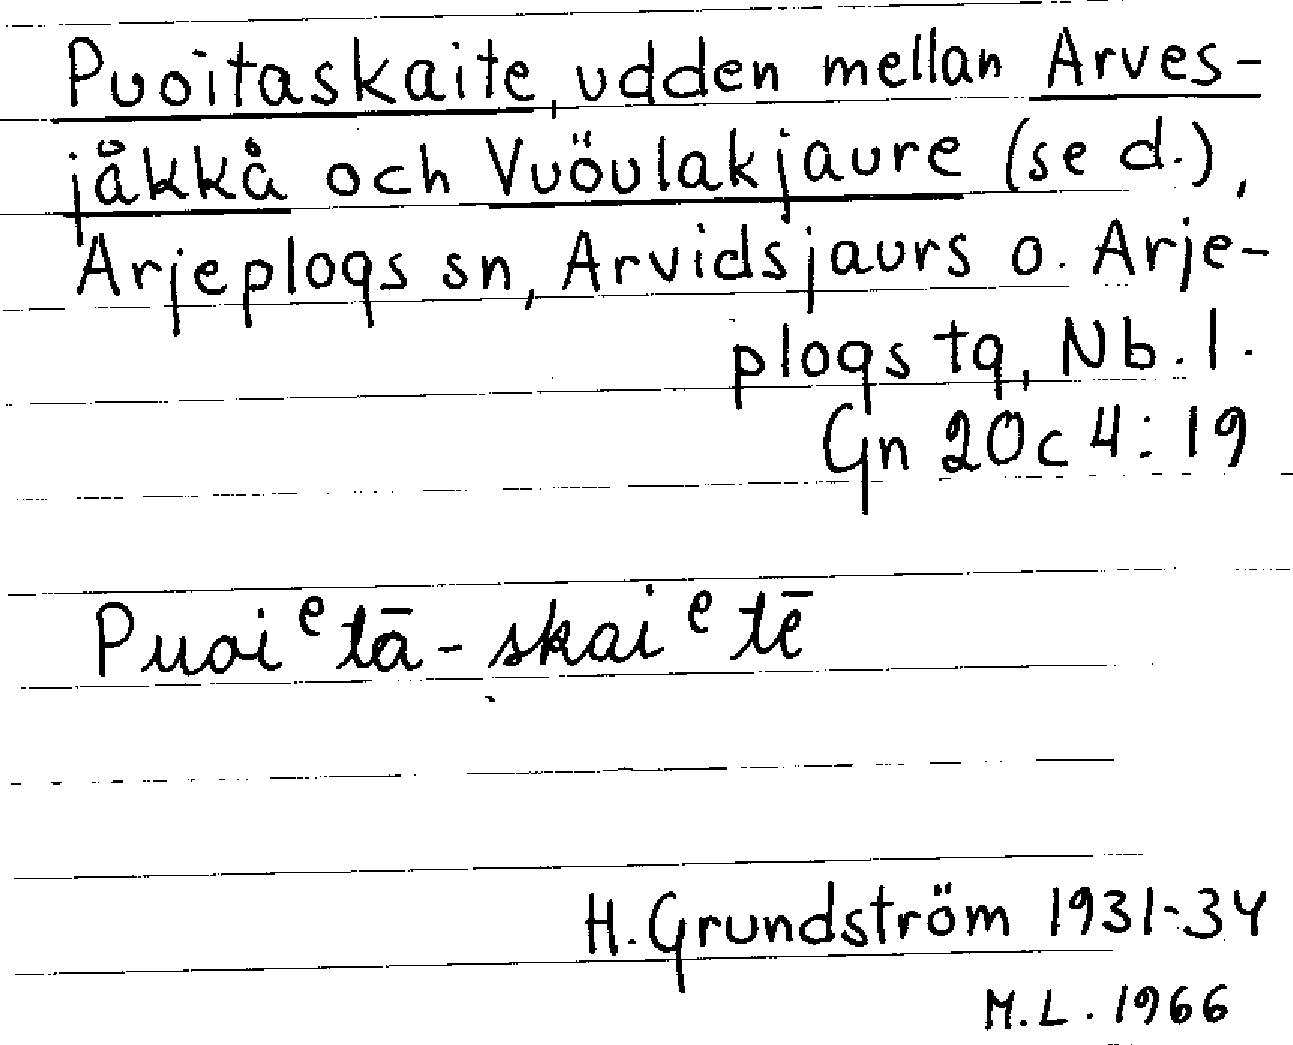 Puoitaskaite, udden mellan Arves-
jåkkå och Vuöulakjaure (se d.),
Arjeplogs sn, Arvidsjaurs o. Arje-
plogs tg, Nb. l.
Gn 20c 4:19
Puoiᵉtā-skaiᵉtē
H. Grundström 1931-34
M.L. 1966